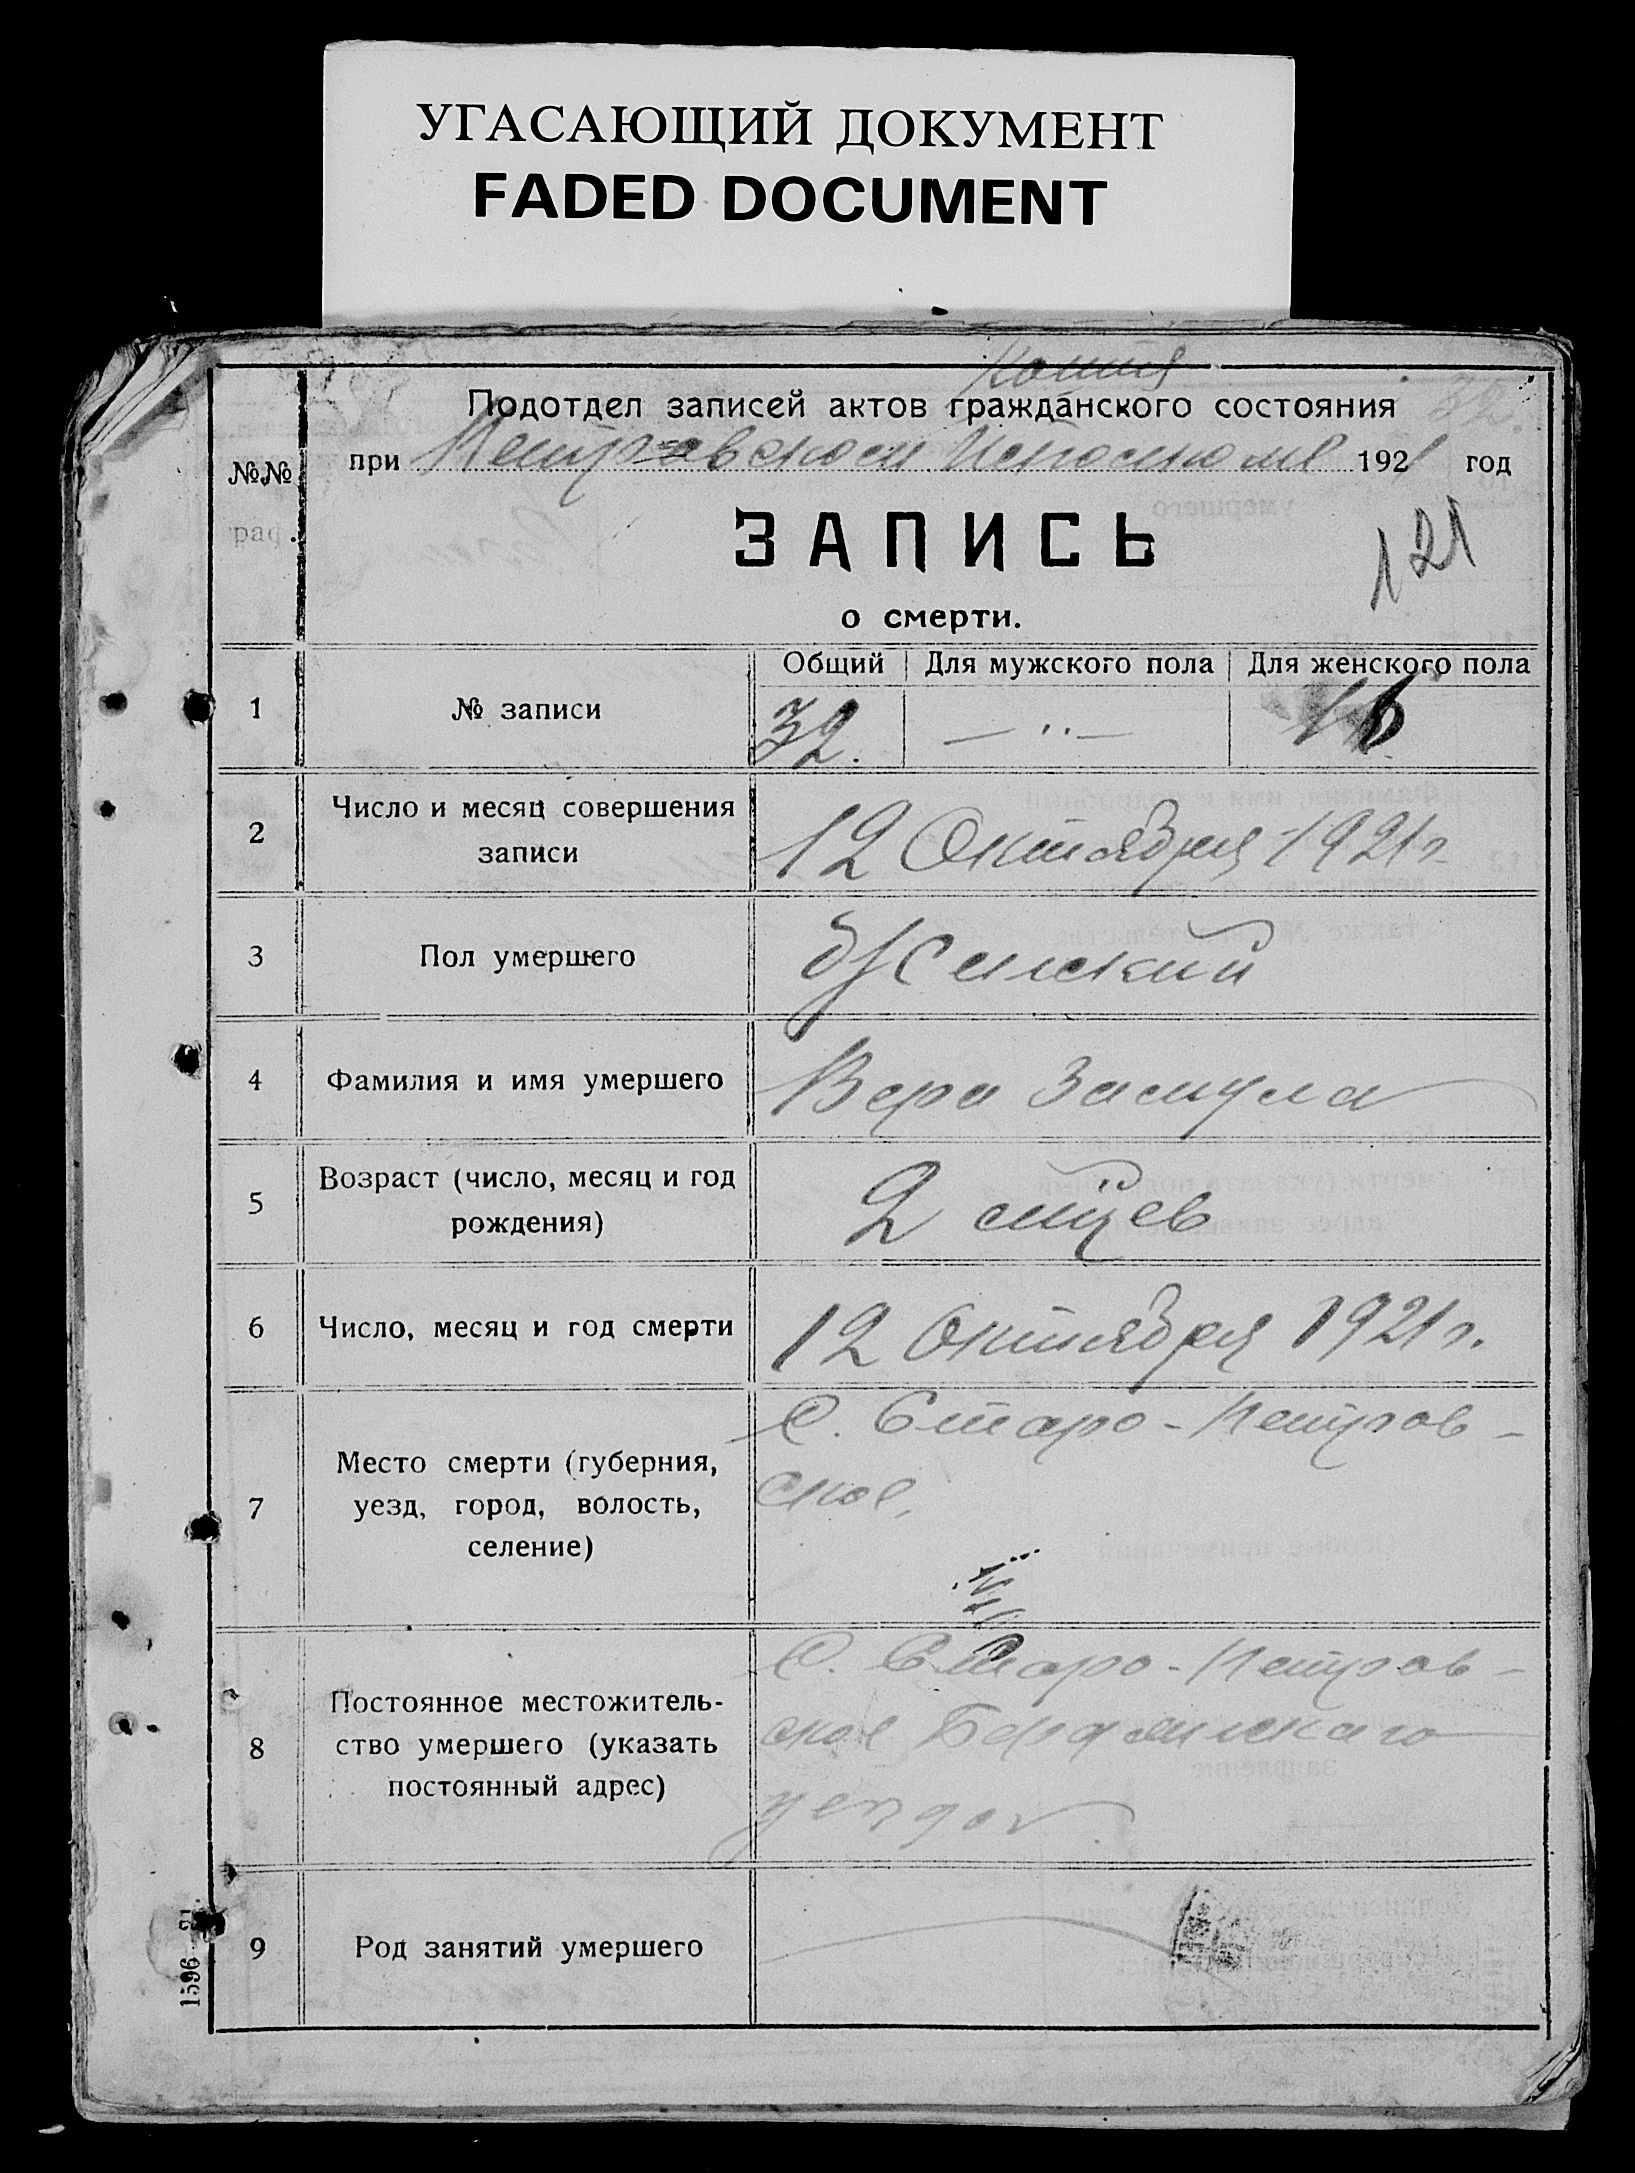 УГАСАЮЩИЙ ДОКУМЕНТ
FADED DOCUMENT
Копия
Подотдел записей актов гражданского состояния 32.
при Петровском Исполкоме 1921 год
№№ граф.
ЗАПИСЬ
121
о смерти.
Общий Для мужского пола Для женского пола
1 № записи 32. — " — 16
2 Число и месяц совершения записи 12 Октября 1921 г.
3 Пол умершего Женский
4 Фамилия и имя умершего Вера Замула
5 Возраст (число, месяц и год рождения) 2 м-цев
6 Число, месяц и год смерти 12 Октября 1921 г.
7 Место смерти (губерния,
уезд, город, волость,
селение)
С. Старо-Петров-
ское,
8 Постоянное местожитель-
ство умершего (указать
постоянный адрес)
С. Старо-Петров-
ское Бердянскаго
уезда
9 Род занятий умершего —
1596—21.